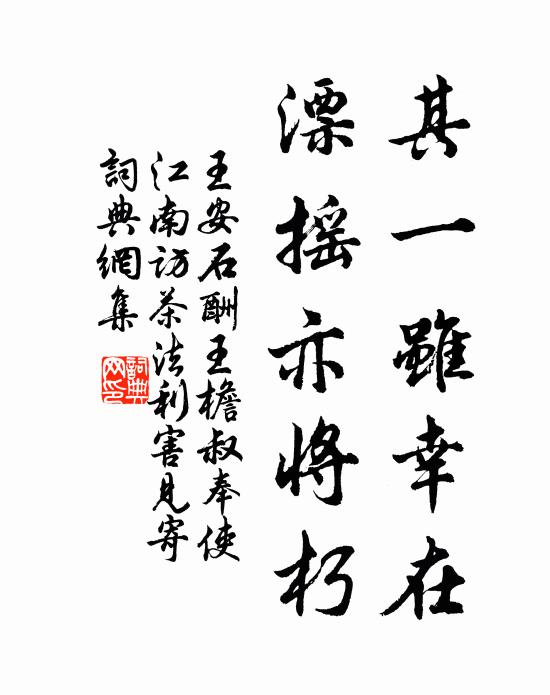 其一雖幸在
漂摇亦將朽
王安石酬王檐叔奉使
江南訪茶法利害見寄
詞典網集
詞典
網印